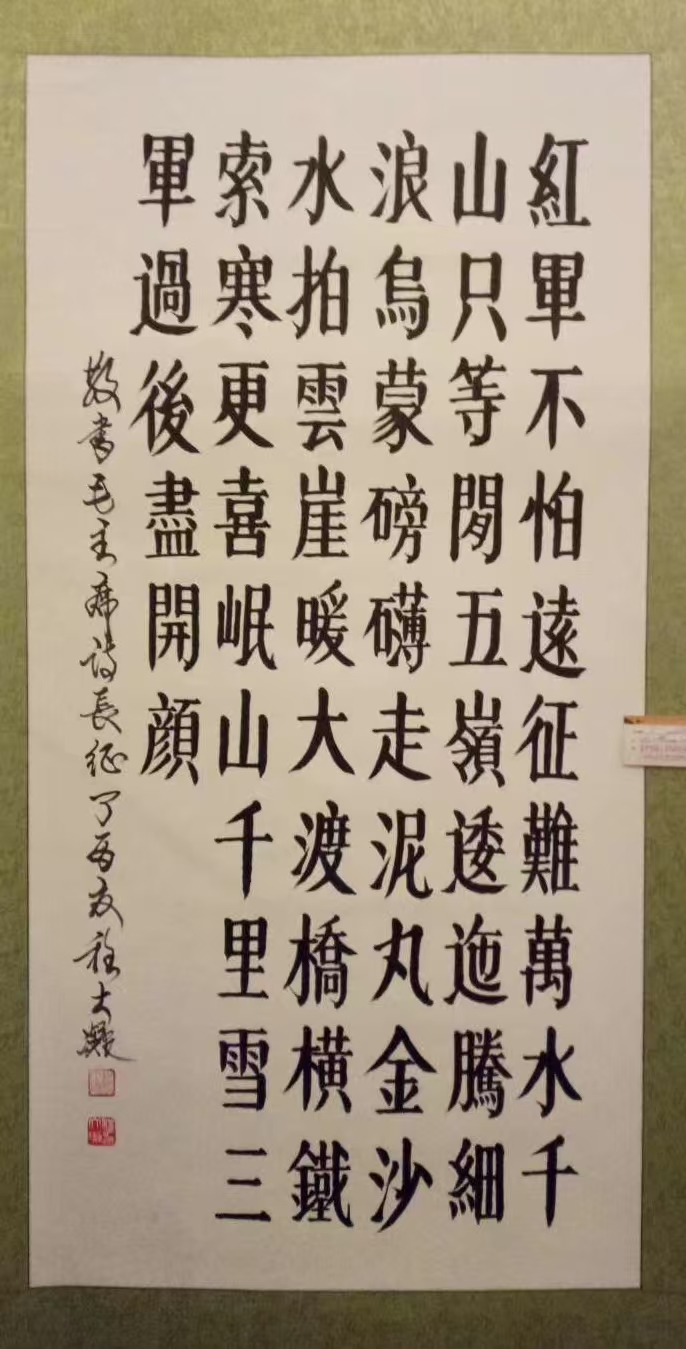 紅軍不怕遠征難萬水千
山只等閒五嶺逶迤騰細
浪烏蒙磅礴走泥丸金沙
水拍雲崖暖大渡橋橫鐵
索寒更喜岷山千里雪三
軍過後盡開顔
敬書毛主席詩長征